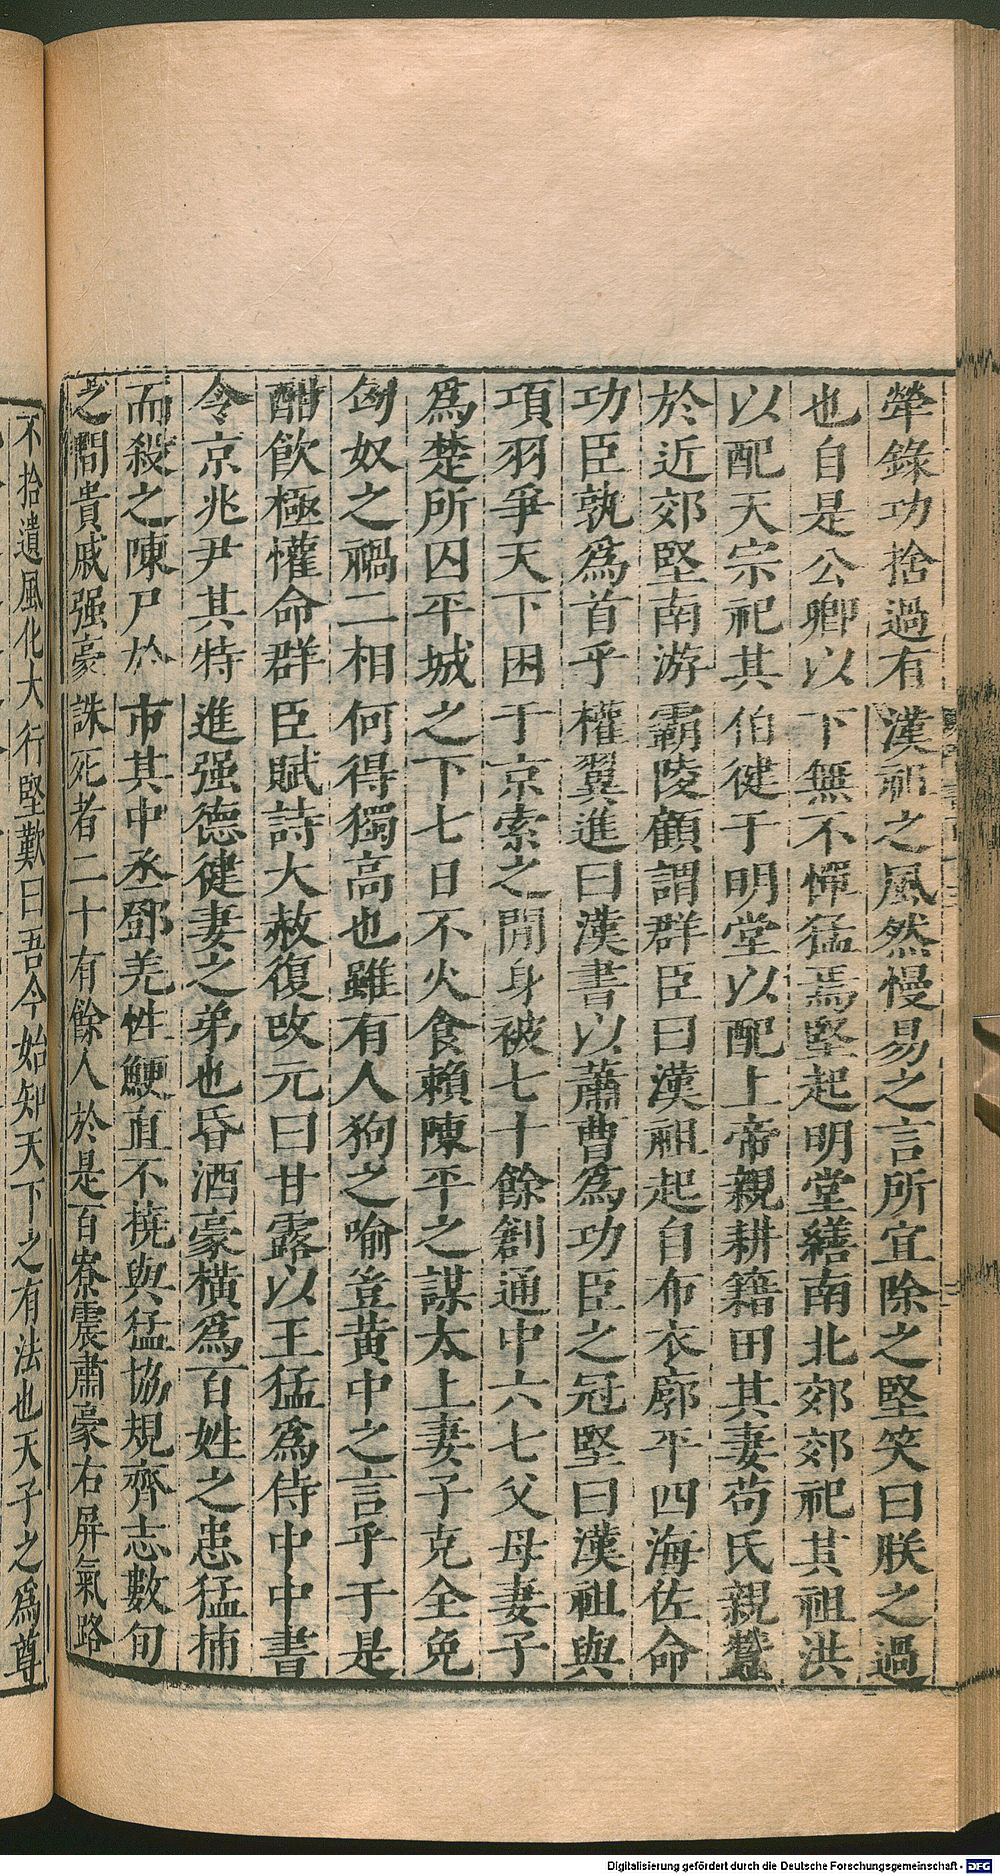 犖錄功捨過有漢祖之風然慢易之言所宜除之堅笑曰朕之過
也自是公卿以下無不憚猛焉堅起明堂繕南北郊郊祀其祖洪
以配天宗祀其伯健于明堂以配上帝親耕籍田其妻苟氏親蠶
於近郊堅南游霸陵顧謂群臣曰漢祖起自布衣廓平四海佐命
功臣孰爲首乎權翼進曰漢書以蕭曹爲功臣之冠堅曰漢祖與
項羽爭天下困于京索之間身被七十餘創通中六七父母妻子
爲楚所囚平城之下七日不火食賴陳平之謀太上妻子克全免
匈奴之禍二相何得獨高也雖有人狗之喻豈黃中之言乎于是
酣飮極懽命群臣賦詩大赦復攺元曰甘露以王猛爲侍中中書
令京兆尹其特進强德健妻之弟也昏酒豪橫爲百姓之患猛捕
而殺之陳尸於市其中丞鄧羌性鯁直不撓與猛協規齊志數旬
之間貴戚强豪誅死者二十有餘人於是百寮震肅豪右屏氣路
不拾遺風化大行堅歎曰吾今始知天下之有法也天子之爲尊
Digitalisierung gefördert durch die Deutsche Forschungsgemeinschaft - DFG